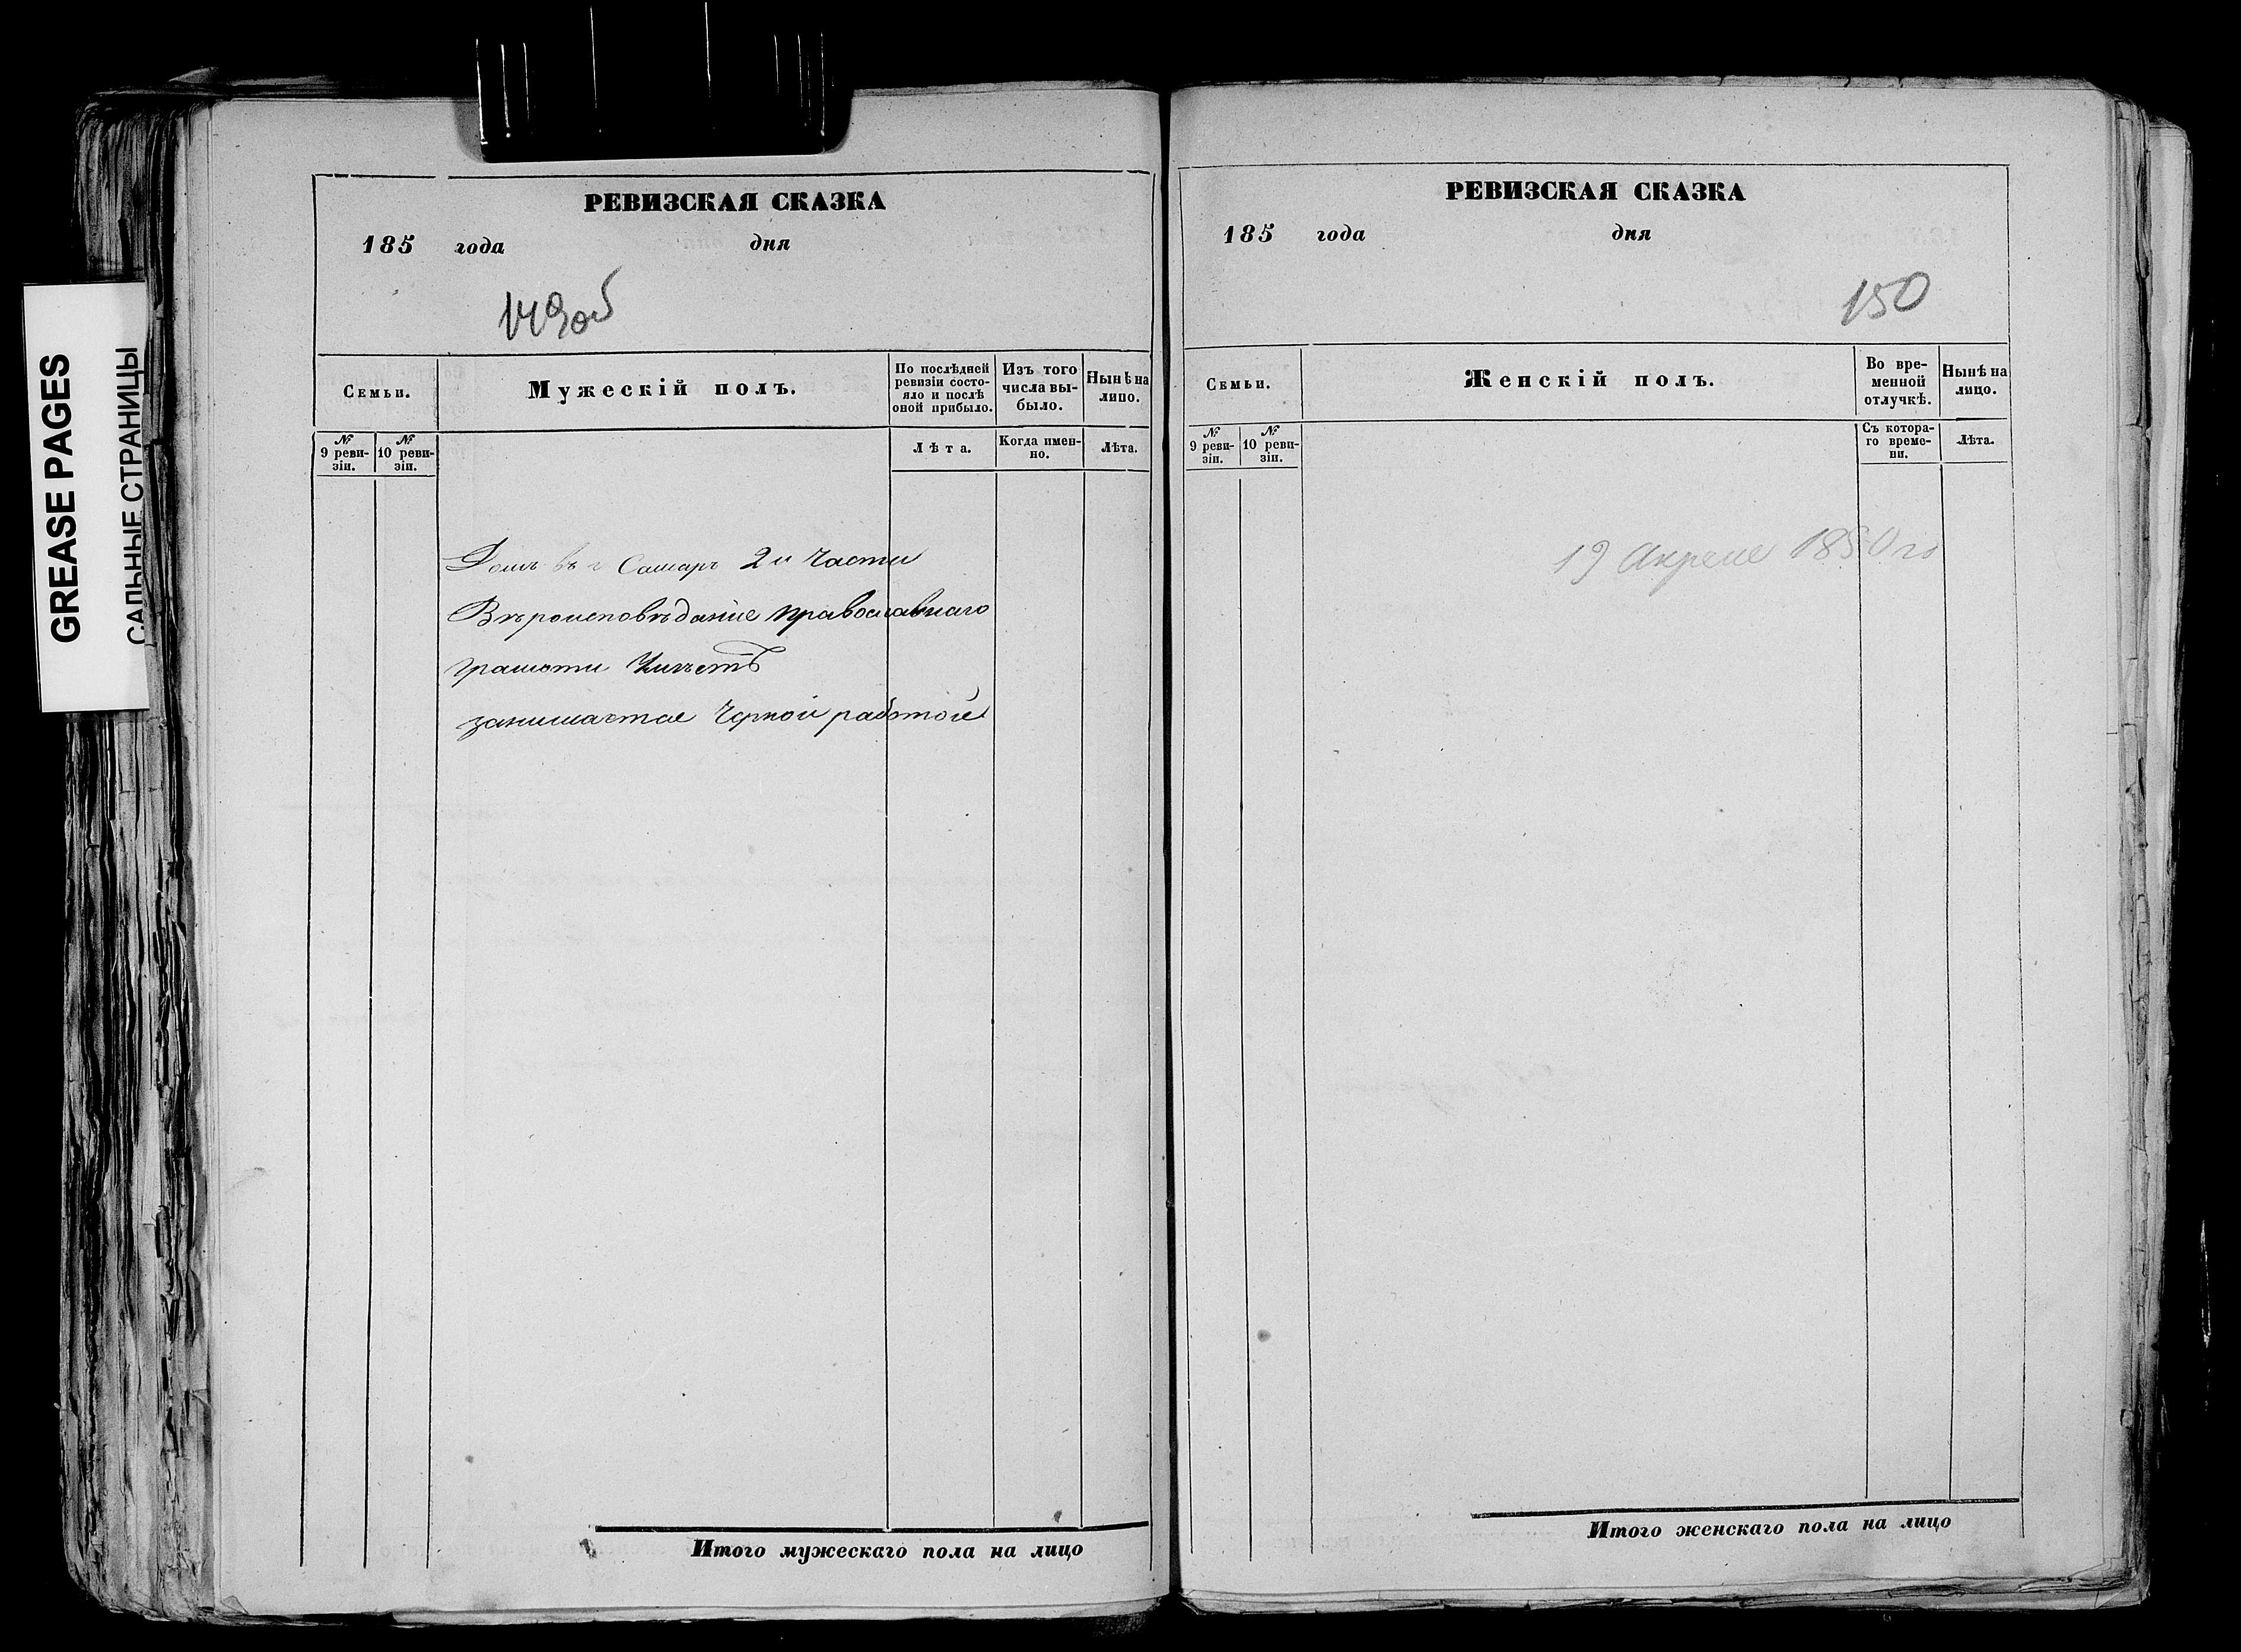 GREASE PAGES
САЛЬНЫЕ СТРАНИЦЫ
РЕВИЗСКАЯ СКАЗКА
185 года дня
149об
Семьи.
Мужескій полъ.
По послѣдней ревизіи состо-
яло и послѣ
оной прибыло.
Изъ того
числа вы-
было.
Нынѣ на
лицо.
№ 9 реви-
зіи.
№ 10 реви-
зіи.
Лѣта.
Когда имен-
но.
Лѣта.
Домъ въ г Самарѣ 2й части
Вѣроисповѣданіе православнаго
грамоти Умѣетъ
занимается Черной работой
Итого мужескаго пола на лицо
РЕВИЗСКАЯ СКАЗКА
185 года дня
150
Семьи.
Женскій полъ.
Во вре-
менной
отлучкѣ.
Нынѣ на
лицо.
№ 9 реви-
зіи.
№ 10 реви-
зіи.
Съ котора-
го време-
ни.
Лѣта.
19 Апреле 1850 го
Итого женскаго пола на лицо